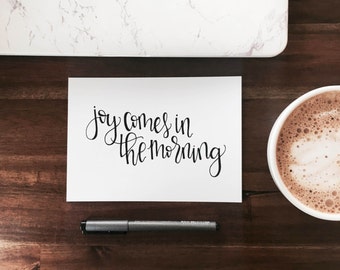 joy comes in
the morning